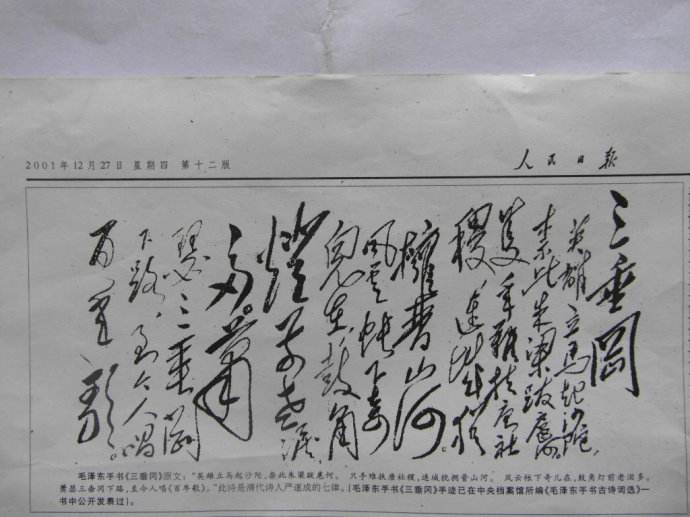 2001年12月27日 星期四 第十二版
人民日报
三垂冈
英雄立马起沙陀
奈此朱梁跋扈何
隻手難扶唐社
稷連城犹
擁晋山河
風雲帐下奇
兒在鼓角
燈前老淚
多萧
瑟三垂岡
下路至今人唱
百年歌
毛泽东手书《三垂冈》原文："英雄立马起沙陀，奈此朱梁跋扈何。 只手难扶唐社稷，连城犹拥晋山河。 风云帐下奇儿在，鼓角灯前老泪多。
萧瑟三垂冈下路，至今人唱《百年歌》。"此诗是清代诗人严遂成的七律。(毛泽东手书《三垂冈》手迹已在中央档案馆所编《毛泽东手书古诗词选》一
书中公开发表过)。